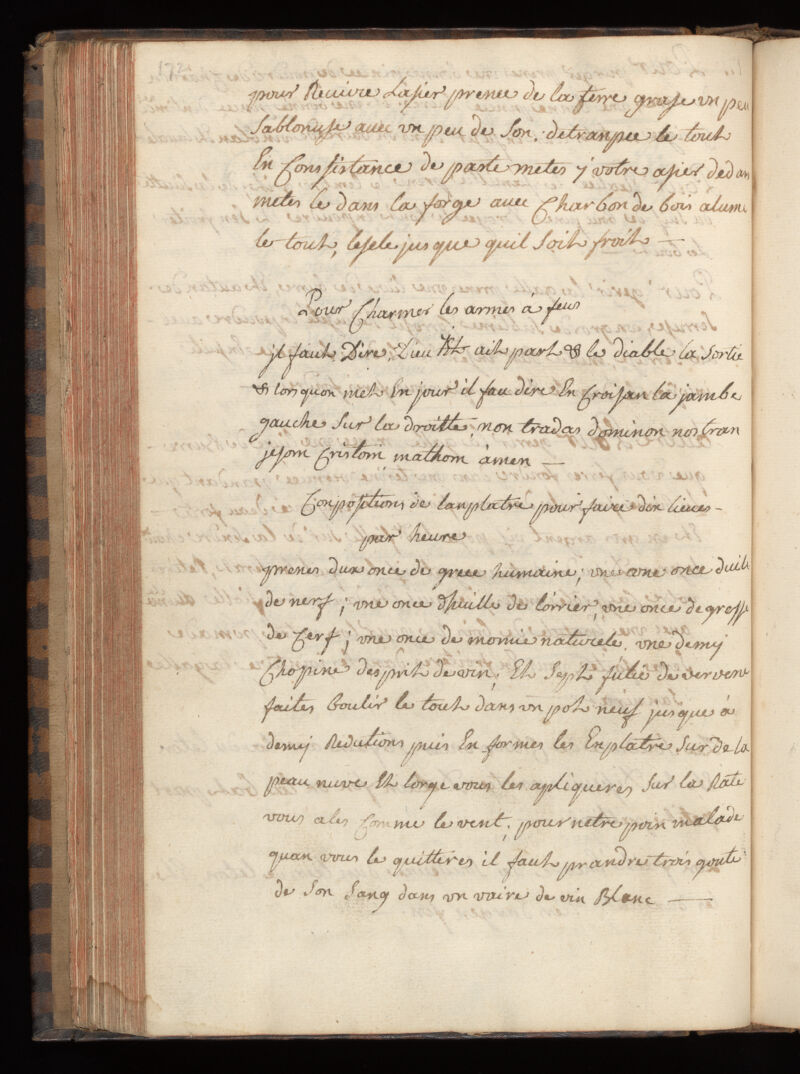 152
pour Recuire Lasier prenee de la terre grase un peu
Sablonuse auec un peu de Son, detranpee le tout
En Conssistance de paste metes y votre asier dedan
metes le dans la forge auec Charbon de bois alume
le tout, lesele jusque quil Soit froit —
Pour Charmer les armes à feus
jl faut Dire, Dieu Et ait part & le diable la Sortie
& lorsquon met En jour il fau dire En Croisan la jambe
gauche Sur la droitte, non tradas dominon nostran
jesom Cristom, mathom amen —
Compositions de lanplatre pour faire dix lieues -
par heure
prenes dux once de grece humaine; une once duile
de nerf; une once dhuille de lorrier, une once de gresse
de Cerf; une once de momie naturele, une demij
Chopine desprit de vin; Et Sept futie de vervene
faites boulir le tout dans un pot neuf jusque à
demij Redutions puis En formes les Enplatre Sur de la
peau nuve Et lorge vous les apliqueres Sur la Rate
vous ales Comme le vent; pour netre poin malade
quan vous le quitteres il faut prandre trois goute
de Son Sang dans un vaire de vin Blanc —